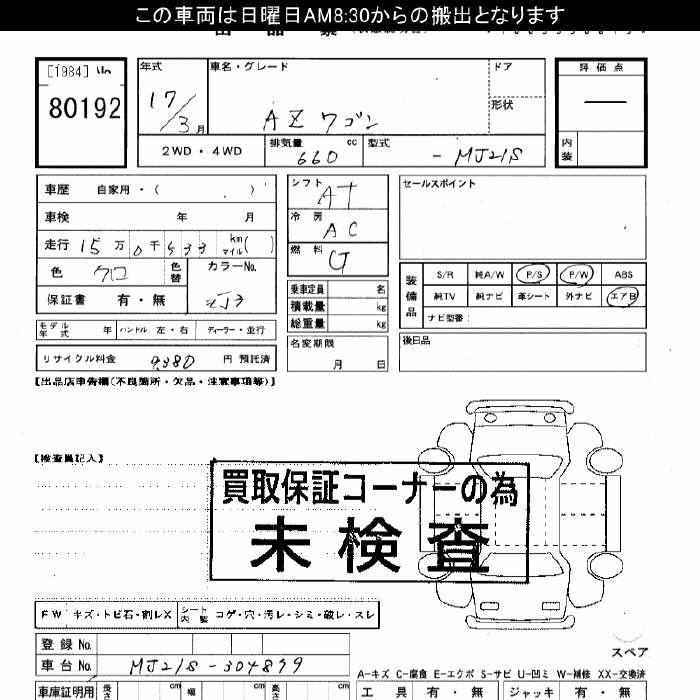 この車両は日曜日AM8:30からの搬出となります
[1984]
80192
年式
17/3月
車名・グレード
AZ ワゴン
ドア
形状
評価点
—
内装
2WD・4WD
排気量 660 cc
型式 -MJ21S
車歴 自家用・( )
車検 年 月
走行 15万0千533 km マイル( )
色 クロ 色替
カラーNo. ZJ3
保証書 有・無
シフト AT
冷房 AC
燃料 G
乗車定員 名
積載量 kg
総重量 kg
セールスポイント
装備品
S/R 純A/W P/S P/W ABS
純TV 純ナビ 革シート 外ナビ エアB
ナビ型番:
モデル年式 年 ハンドル 左・右 ディーラー・並行
リサイクル料金 9,380 円 預託済
名変期限
月 日
後日品
【出品店申告欄(不良箇所・欠品・注意事項等)】
【検査員記入】
買取保証コーナーの為
未検査
FW キズ・トビ石・割レX
シート内装 コゲ・穴・汚レ・シミ・破レ・スレ
スペア
登録 No.
車台 No. MJ21S-304899
A-キズ C-腐食 E-エクボ S-サビ U-凹ミ W-補修 XX-交換済
車庫証明用 長さ cm 幅 cm 高さ cm
工具 有・無 ジャッキ 有・無